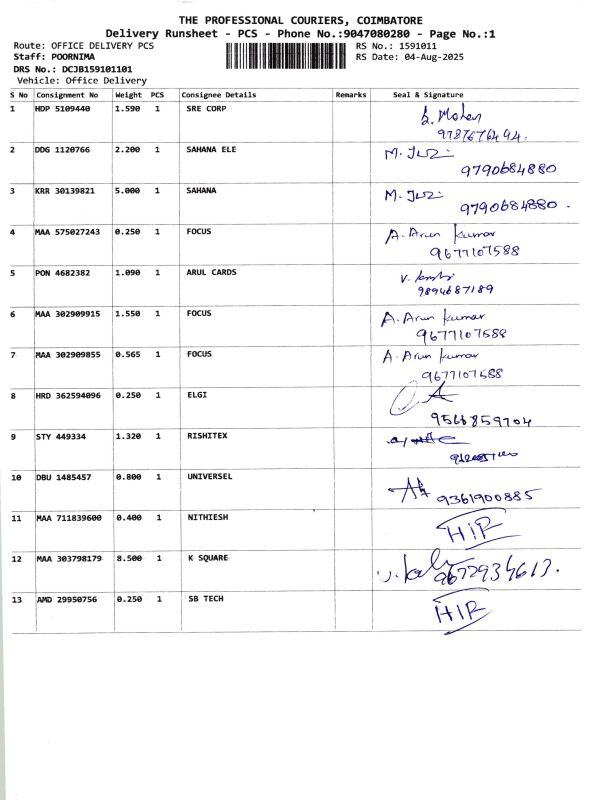 THE PROFESSIONAL COURIERS, COIMBATORE
Delivery Runsheet - PCS - Phone No.:9047080280 - Page No.:1
Route: OFFICE DELIVERY PCS RS No.: 1591011
Staff: POORNIMA RS Date: 04-Aug-2025
DRS No.: DCJB159101101
Vehicle: Office Delivery
S No Consignment No Weight PCS Consignee Details Remarks Seal & Signature
1 HDP 5109440 1.590 1 SRE CORP
2 DDG 1120766 2.200 1 SAHANA ELE
9790684880
3 KRR 30139821 5.000 1 SAHANA
9790684880.
4 MAA 575027243 0.250 1 FOCUS A. Arun kumar
9677107588
5 PON 4682382 1.090 1 ARUL CARDS
9894687189
6 MAA 302909915 1.550 1 FOCUS A. Arun kumar
9677107588
7 MAA 302909855 0.565 1 FOCUS A. Arun kumar
9677107588
8 HRD 362594096 0.250 1 ELGI
9566859704
9 STY 449334 1.320 1 RISHITEX
10 DBU 1485457 0.800 1 UNIVERSEL
9361900885
11 MAA 711839600 0.400 1 NITHIESH
12 MAA 303798179 8.500 1 K SQUARE
13 AMD 29950756 0.250 1 SB TECH